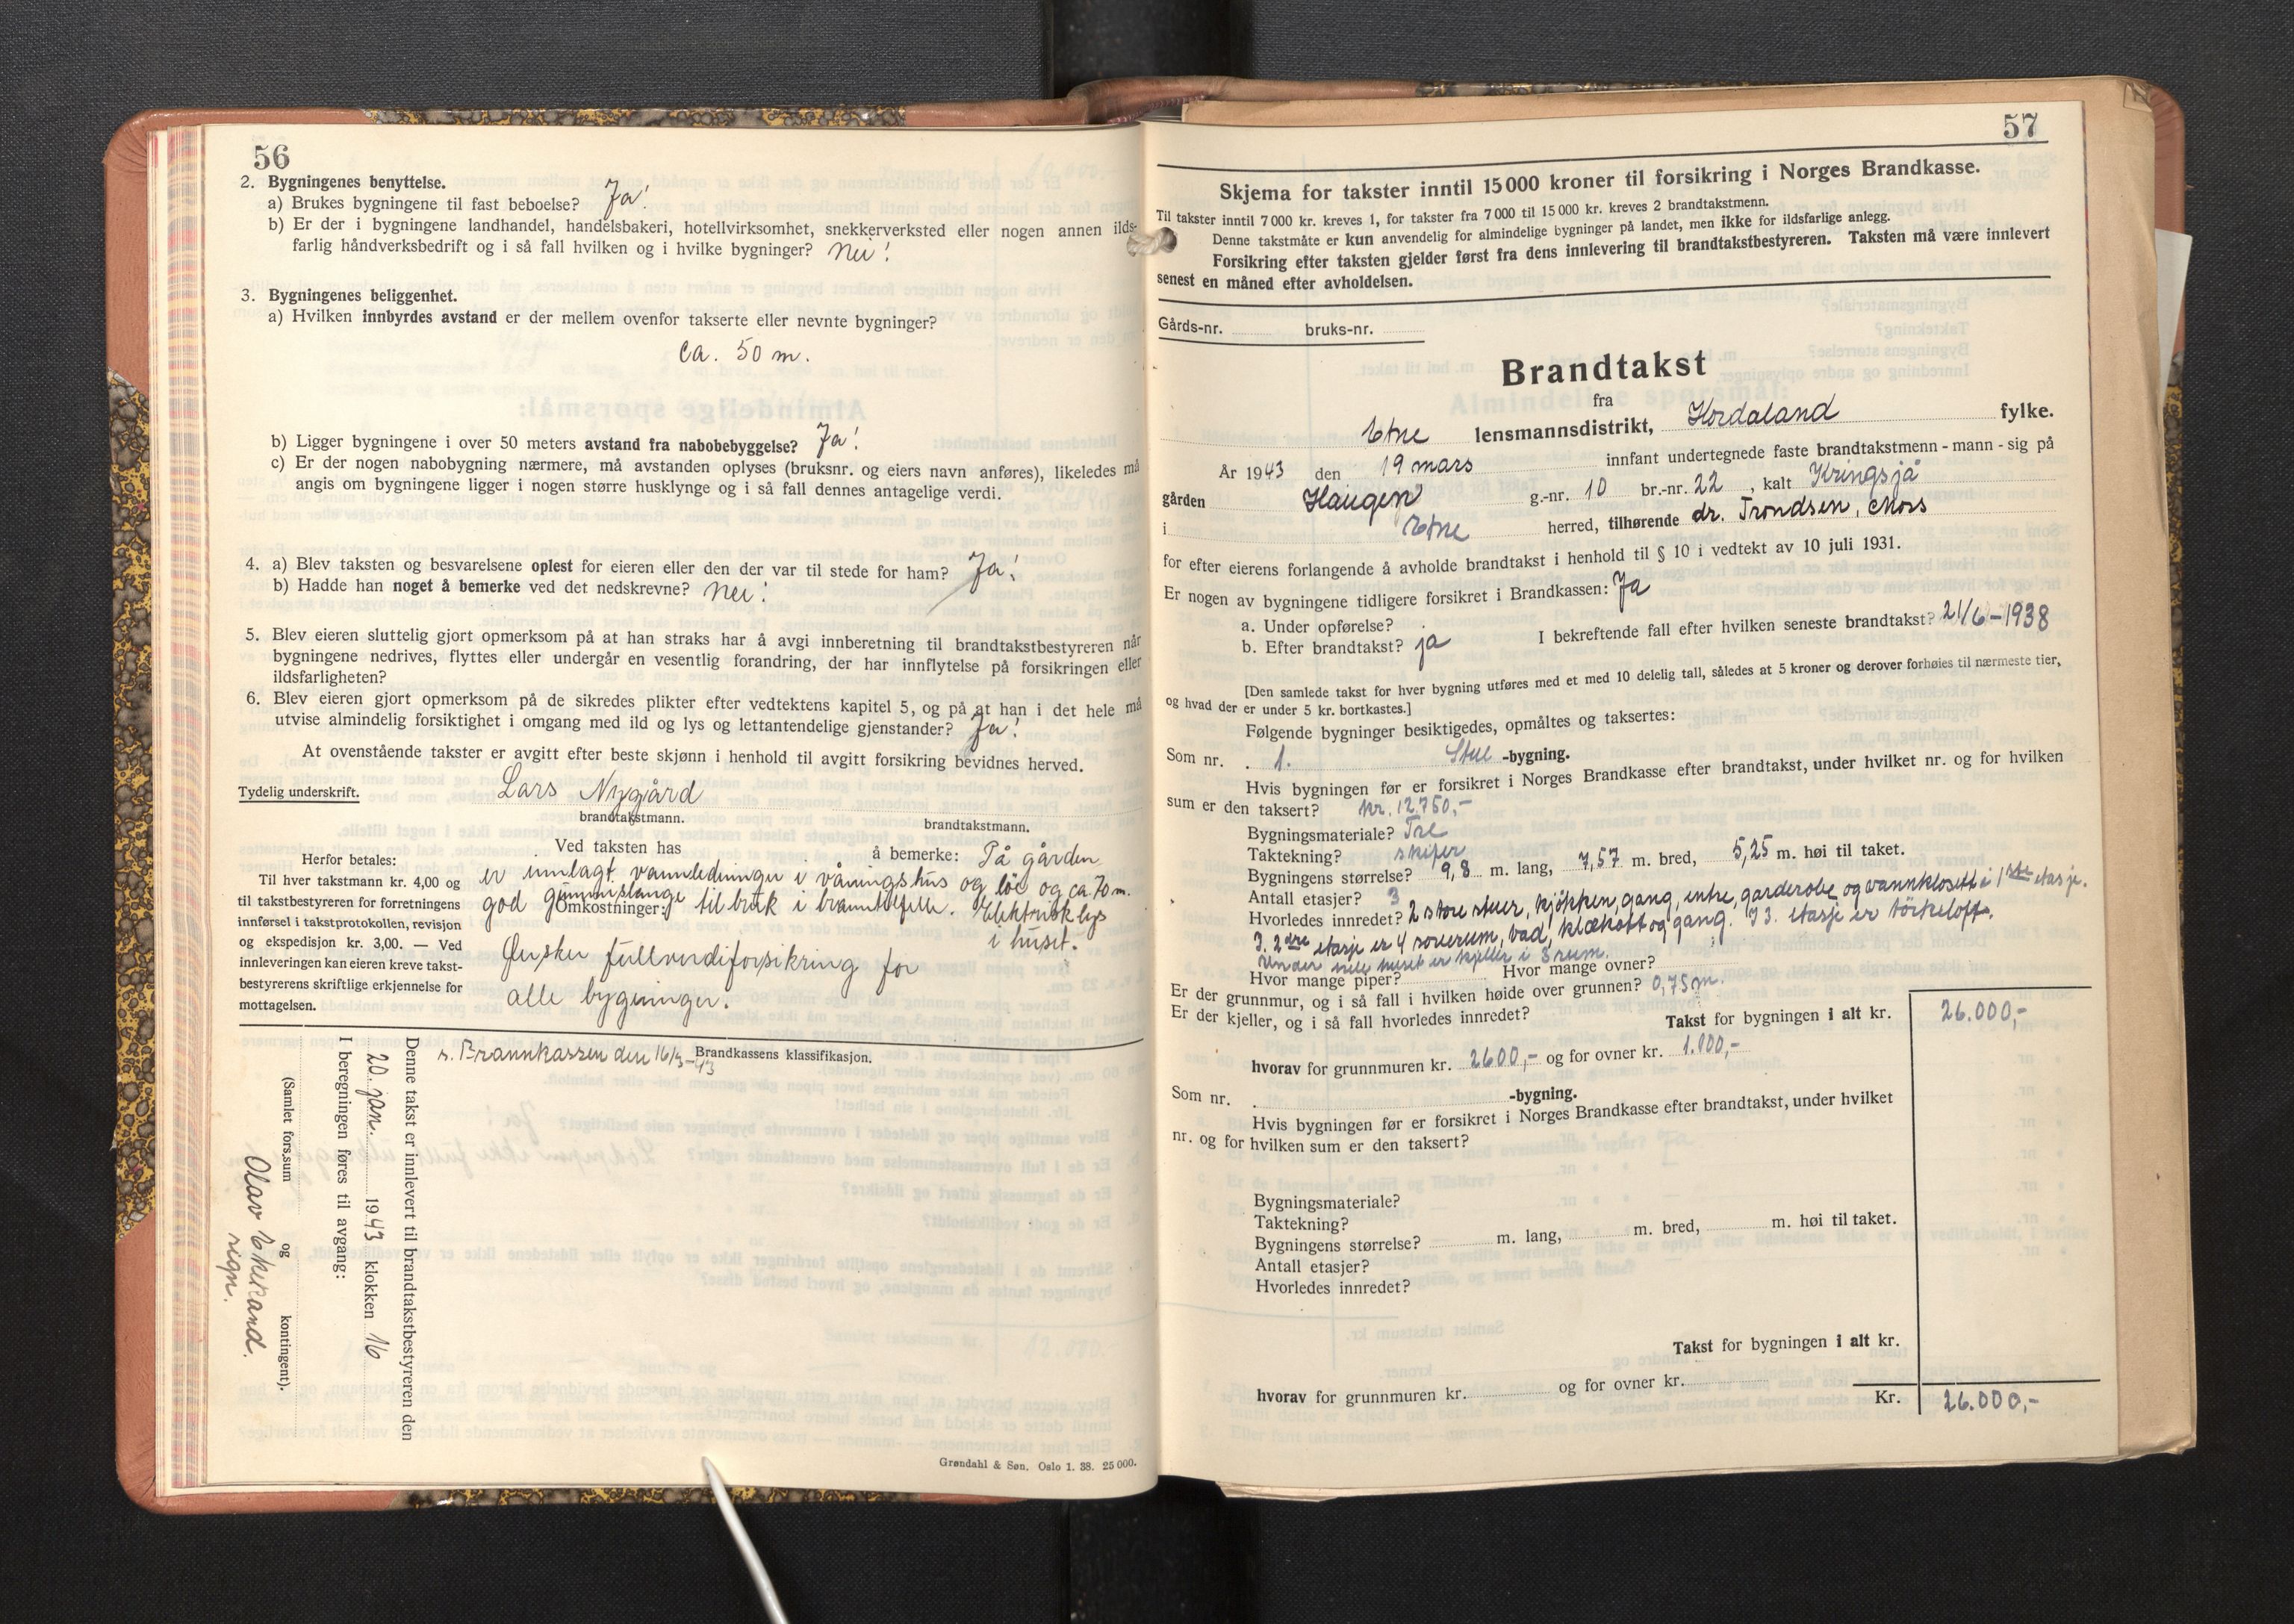 56
2. Bygningenes benyttelse.
a) Brukes bygningene til fast beboelse? Ja!
b) Er der i bygningene landhandel, handelsbakeri, hotellvirksomhet, snekkerverksted eller nogen annen ilds-
farlig håndverksbedrift og i så fall hvilken og i hvilke bygninger? Nei!
3. Bygningenes beliggenhet.
a) Hvilken innbyrdes avstand er der mellem ovenfor takserte eller nevnte bygninger?
ca. 50 m.
b) Ligger bygningene i over 50 meters avstand fra nabobebyggelse? Ja!
c) Er der nogen nabobygning nærmere, må avstanden oplyses (bruksnr. og eiers navn anføres), likeledes må
angis om bygningene ligger i nogen større husklynge og i så fall dennes antagelige verdi.
4. a) Blev taksten og besvarelsene oplest for eieren eller den der var til stede for ham? Ja!
b) Hadde han noget å bemerke ved det nedskrevne? Nei!
5. Blev eieren sluttelig gjort opmerksom på at han straks har å avgi innberetning til brandtakstbestyreren når
bygningene nedrives, flyttes eller undergår en vesentlig forandring, der har innflytelse på forsikringen eller
ildsfarligheten?
6. Blev eieren gjort opmerksom på de sikredes plikter efter vedtektens kapitel 5, og på at han i det hele må
utvise almindelig forsiktighet i omgang med ild og lys og lettantendelige gjenstander? Ja!
At ovenstående takster er avgitt efter beste skjønn i henhold til avgitt forsikring bevidnes herved.
Tydelig underskrift. Lars Nygård
brandtakstmann. brandtakstmann.
Ved taksten has å bemerke: På gården
er innlagt vannledninger i våningshus og løe og ca 70 m.
god gummislange til bruk i branntilfelle. Elektrisk lys
Omkostninger: i huset.
Ønsker fullverdiforsikring for
alle bygninger.
Herfor betales:
Til hver takstmann kr. 4,00 og
til takstbestyreren for forretningens
innførsel i takstprotokollen, revisjon
og ekspedisjon kr. 3,00. — Ved
innleveringen kan eieren kreve takst-
bestyrerens skriftlige erkjennelse for
mottagelsen.
s. Brannkassen den 16/3-43 Brandkassens klassifikasjon.
Denne takst er innlevert til brandtakstbestyreren den
20. jan. 1943 klokken 16
I beregningen føres til avgang:
(Samlet fors.sum og kontingent).
Olav
sign.
Grøndahl & Søn, Oslo 1. 38. 25 000.
57
Skjema for takster inntil 15 000 kroner til forsikring i Norges Brandkasse.
Til takster inntil 7 000 kr. kreves 1, for takster fra 7 000 til 15 000 kr. kreves 2 brandtakstmenn.
Denne takstmåte er kun anvendelig for almindelige bygninger på landet, men ikke for ildsfarlige anlegg.
Forsikring efter taksten gjelder først fra dens innlevering til brandtakstbestyreren. Taksten må være innlevert
senest en måned efter avholdelsen.
Gårds-nr. bruks-nr.
Brandtakst
fra
Etne lensmannsdistrikt, Hordaland fylke.
År 1943 den 19 mars innfant undertegnede faste brandtakstmenn - mann - sig på
gården Haugen g.-nr. 10 br.-nr. 22, kalt Kringsjå
i Etne herred, tilhørende dr. Trondsen, Mors
for efter eierens forlangende å avholde brandtakst i henhold til § 10 i vedtekt av 10 juli 1931.
Er nogen av bygningene tidligere forsikret i Brandkassen: Ja
a. Under opførelse?
b. Efter brandtakst? ja I bekreftende fall efter hvilken seneste brandtakst? 21/6-1938
[Den samlede takst for hver bygning utføres med et med 10 delelig tall, således at 5 kroner og derover forhøies til nærmeste tier,
og hvad der er under 5 kr. bortkastes.]
Følgende bygninger besiktigedes, opmåltes og taksertes:
Som nr. 1. Stue -bygning.
Hvis bygningen før er forsikret i Norges Brandkasse efter brandtakst, under hvilket nr. og for hvilken
sum er den taksert? kr. 12.750,-
Bygningsmateriale? Tre
Taktekning? skifer
Bygningens størrelse? 9,8 m. lang, 7,57 m. bred, 5,25 m. høi til taket.
Antall etasjer? 3
Hvorledes innredet? 2 store stuer, kjøkken, gang, entre, garderobe og vannklosett i 1ste etasje.
I 2dre etasje er 4 soverum, bad, klækott og gang. I 3. etasje er törkeloft.
Under hele huset er kjeller i 3 rum.
Hvor mange piper? Hvor mange ovner?
Er der grunnmur, og i så fall i hvilken høide over grunnen? 0,75 m.
Er der kjeller, og i så fall hvorledes innredet?
Takst for bygningen i alt kr. 26.000,-
hvorav for grunnmuren kr. 2600,- og for ovner kr. 1.100,-
Som nr. -bygning.
Hvis bygningen før er forsikret i Norges Brandkasse efter brandtakst, under hvilket
nr. og for hvilken sum er den taksert?
Bygningsmateriale?
Taktekning?
Bygningens størrelse? m. lang, m. bred, m. høi til taket.
Antall etasjer?
Hvorledes innredet?
Takst for bygningen i alt kr.
hvorav for grunnmuren kr. og for ovner kr.
Kr. 26.000,-